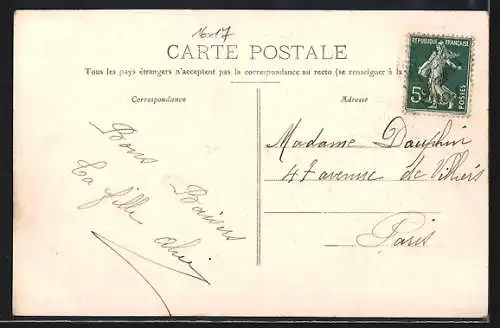 16-17
CARTE POSTALE
Tous les pays étrangers n'acceptent pas la correspondance au recto (se renseigner à la
Correspondance
Adresse
RÉPUBLIQUE FRANÇAISE
5c
POSTES
Bons Baisers
Ta fille
Madame Dauphin
47 avenue de Villiers
Paris